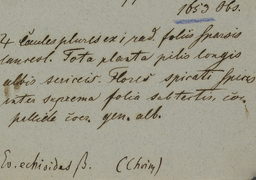 1653 Obs.
4 Caules plures ex 1 rad. foliis sparsis
lanceol. Tota planta pilis longis
albis sericeis. Flores spicati
inter suprema folia subtectis, cor.
pallide coer. gen. alb.
Ev. echioides β. (Choix)